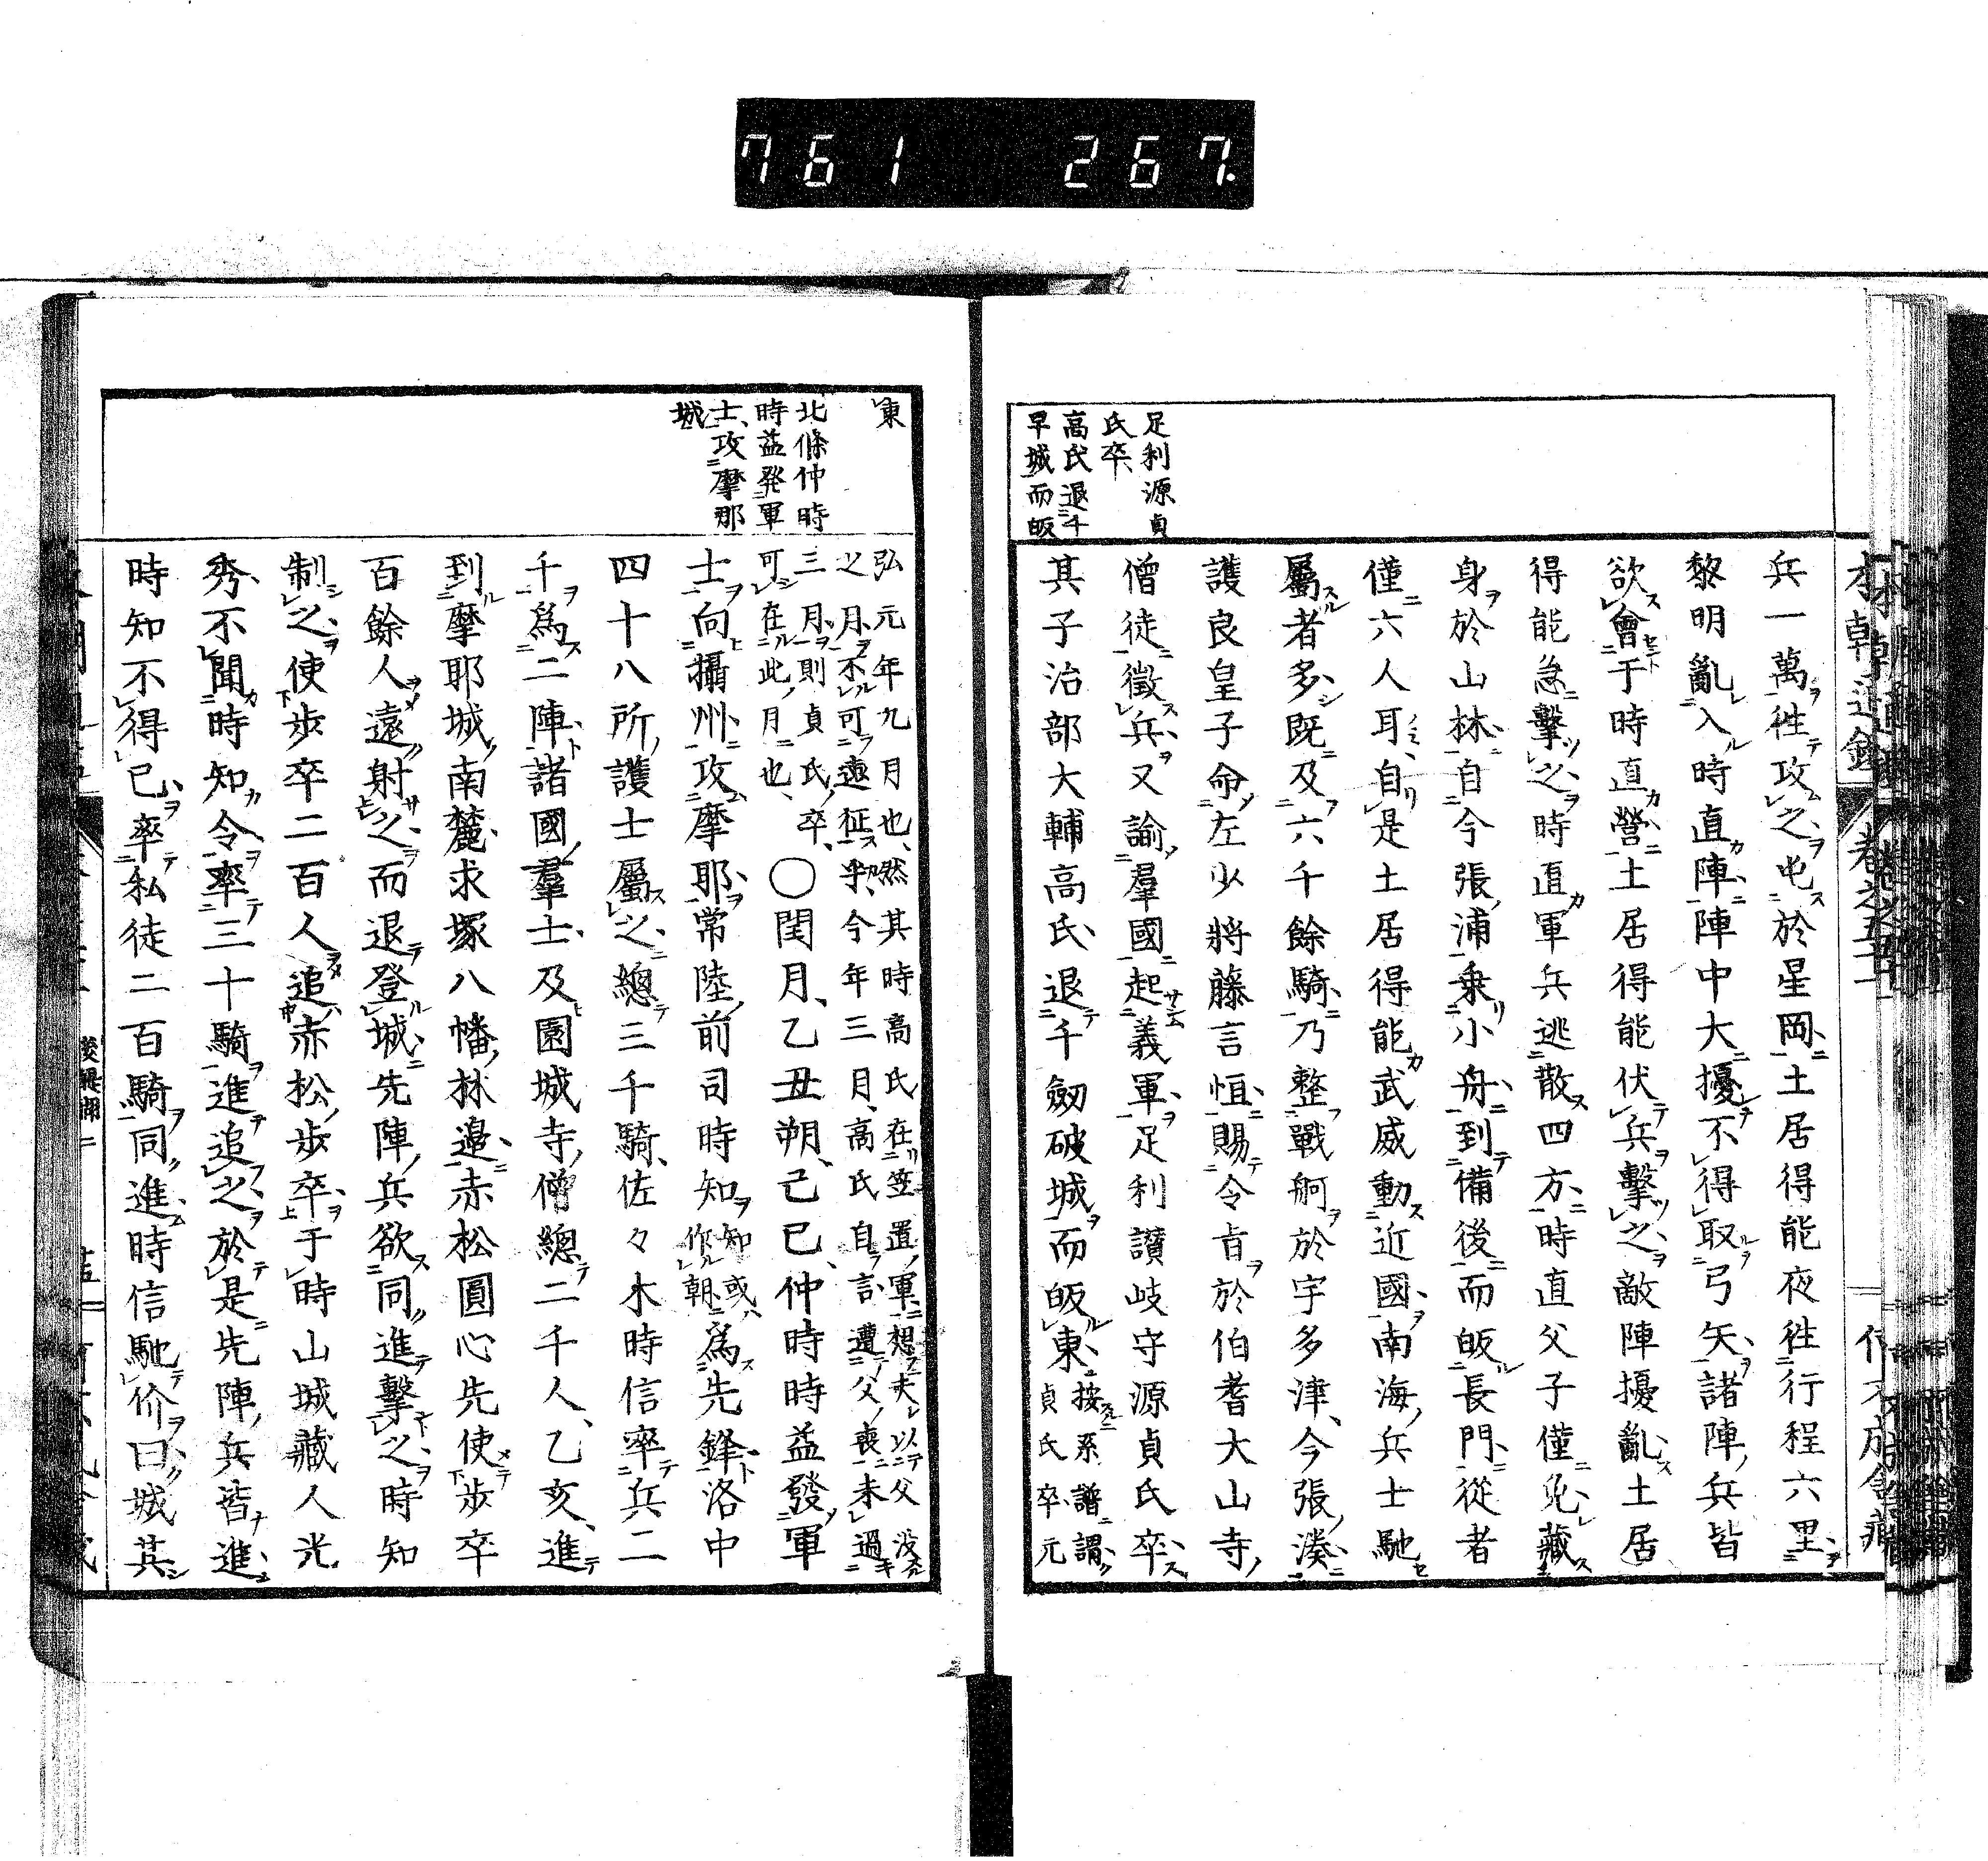 761 267.
足利源貞
氏卒
高氏退千
早城而皈
兵一萬徃攻之屯於星岡土居得能夜徃行程六里
黎明亂入時直陣陣中大擾不得取弓矢諸陣兵皆
欲會于時直營土居得能伏兵擊之敵陣擾亂土居
得能急擊之時直軍兵逃散四方時直父子僅免藏
身於山林自今張浦乗小舟到備後而皈長門從者
僅六人耳自是土居得能武威動近國南海兵士馳
屬者多既及六千餘騎乃整戰舸於宇多津今張湊
護良皇子命左少將藤言恒賜令旨於伯耆大山寺
僧徒徵兵又諭羣國起義軍足利讃岐守源貞氏卒
其子治部大輔高氏退千劔破城而皈東按系譜謂
貞氏卒元
東
北條仲時
時益發軍
士攻摩那
城
弘元年九月也然其時高氏在笠置軍想夫以父没
之月不可遠征乎今年三月高氏自言遭父喪未過
三月則貞氏卒
可在此月也
〇閏月乙丑朔己巳仲時時益發軍
士向攝州攻摩耶常陸前司時知知或作朝為先鋒洛中
四十八所護士屬之總三千騎佐々木時信率兵二
千為二陣諸國羣士及園城寺僧總二千人乙亥進
到摩耶城南麓求塚八幡林邉赤松圓心先使歩卒
百餘人遠射之而退登城先陣兵欲同進擊之時知
制之使歩卒二百人追赤松歩卒于時山城藏人光
秀不聞時知令率三十騎進追之於是先陣兵皆進
時知不得已率私徒二百騎同進時信馳价曰城其